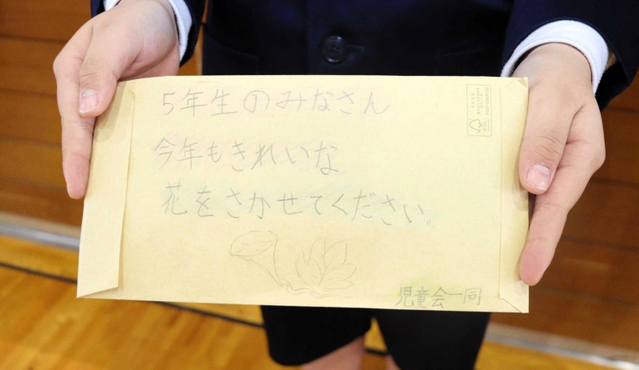 5年生のみなさん
今年もきれいな
花をさかせてください。
児童会一同